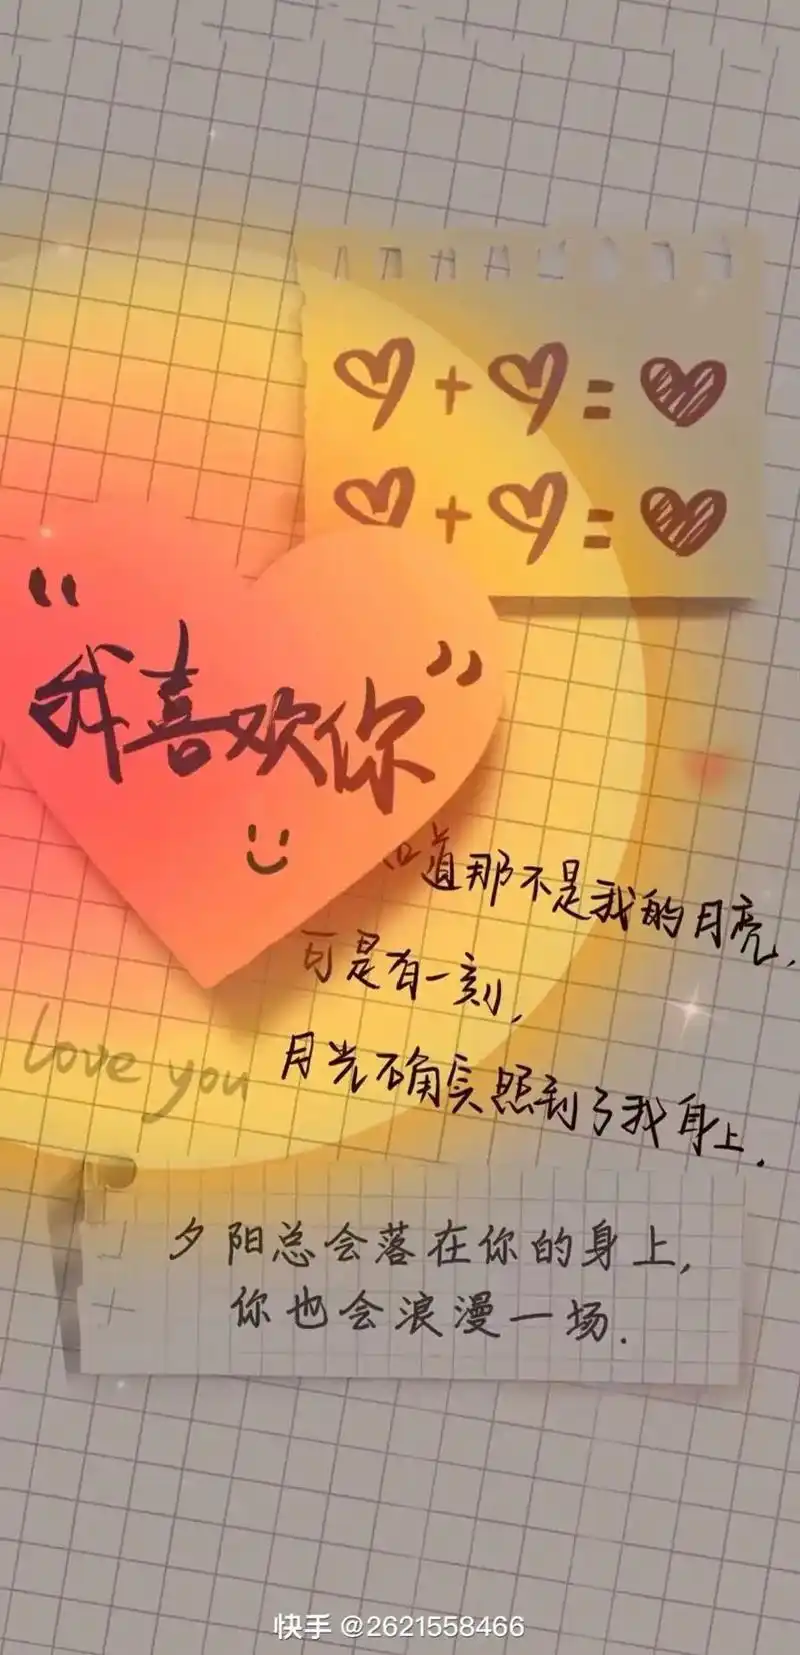 ♡+♡=♥
♡+♡=♥
“我喜欢你”
道那不是我的月亮,
可是有一刻,
月光确实照到了我身上.
love you
夕阳总会落在你的身上,
你也会浪漫一场.
快手 @2621558466